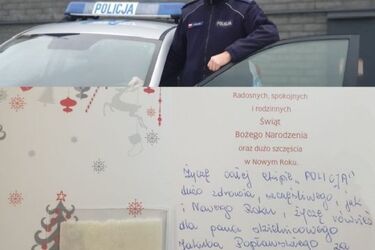 POLICJA
POLICJA
Radosnych, spokojnych
i rodzinnych
Świąt
Bożego Narodzenia
oraz dużo szczęścia
w Nowym Roku.
Życzę całej ekipie "POLICJA"
dużo zdrowia, szczęśliwego, jak
i Nowego Roku, życzę również
dla pana dzielnicowego
Jakuba Popławskiego za